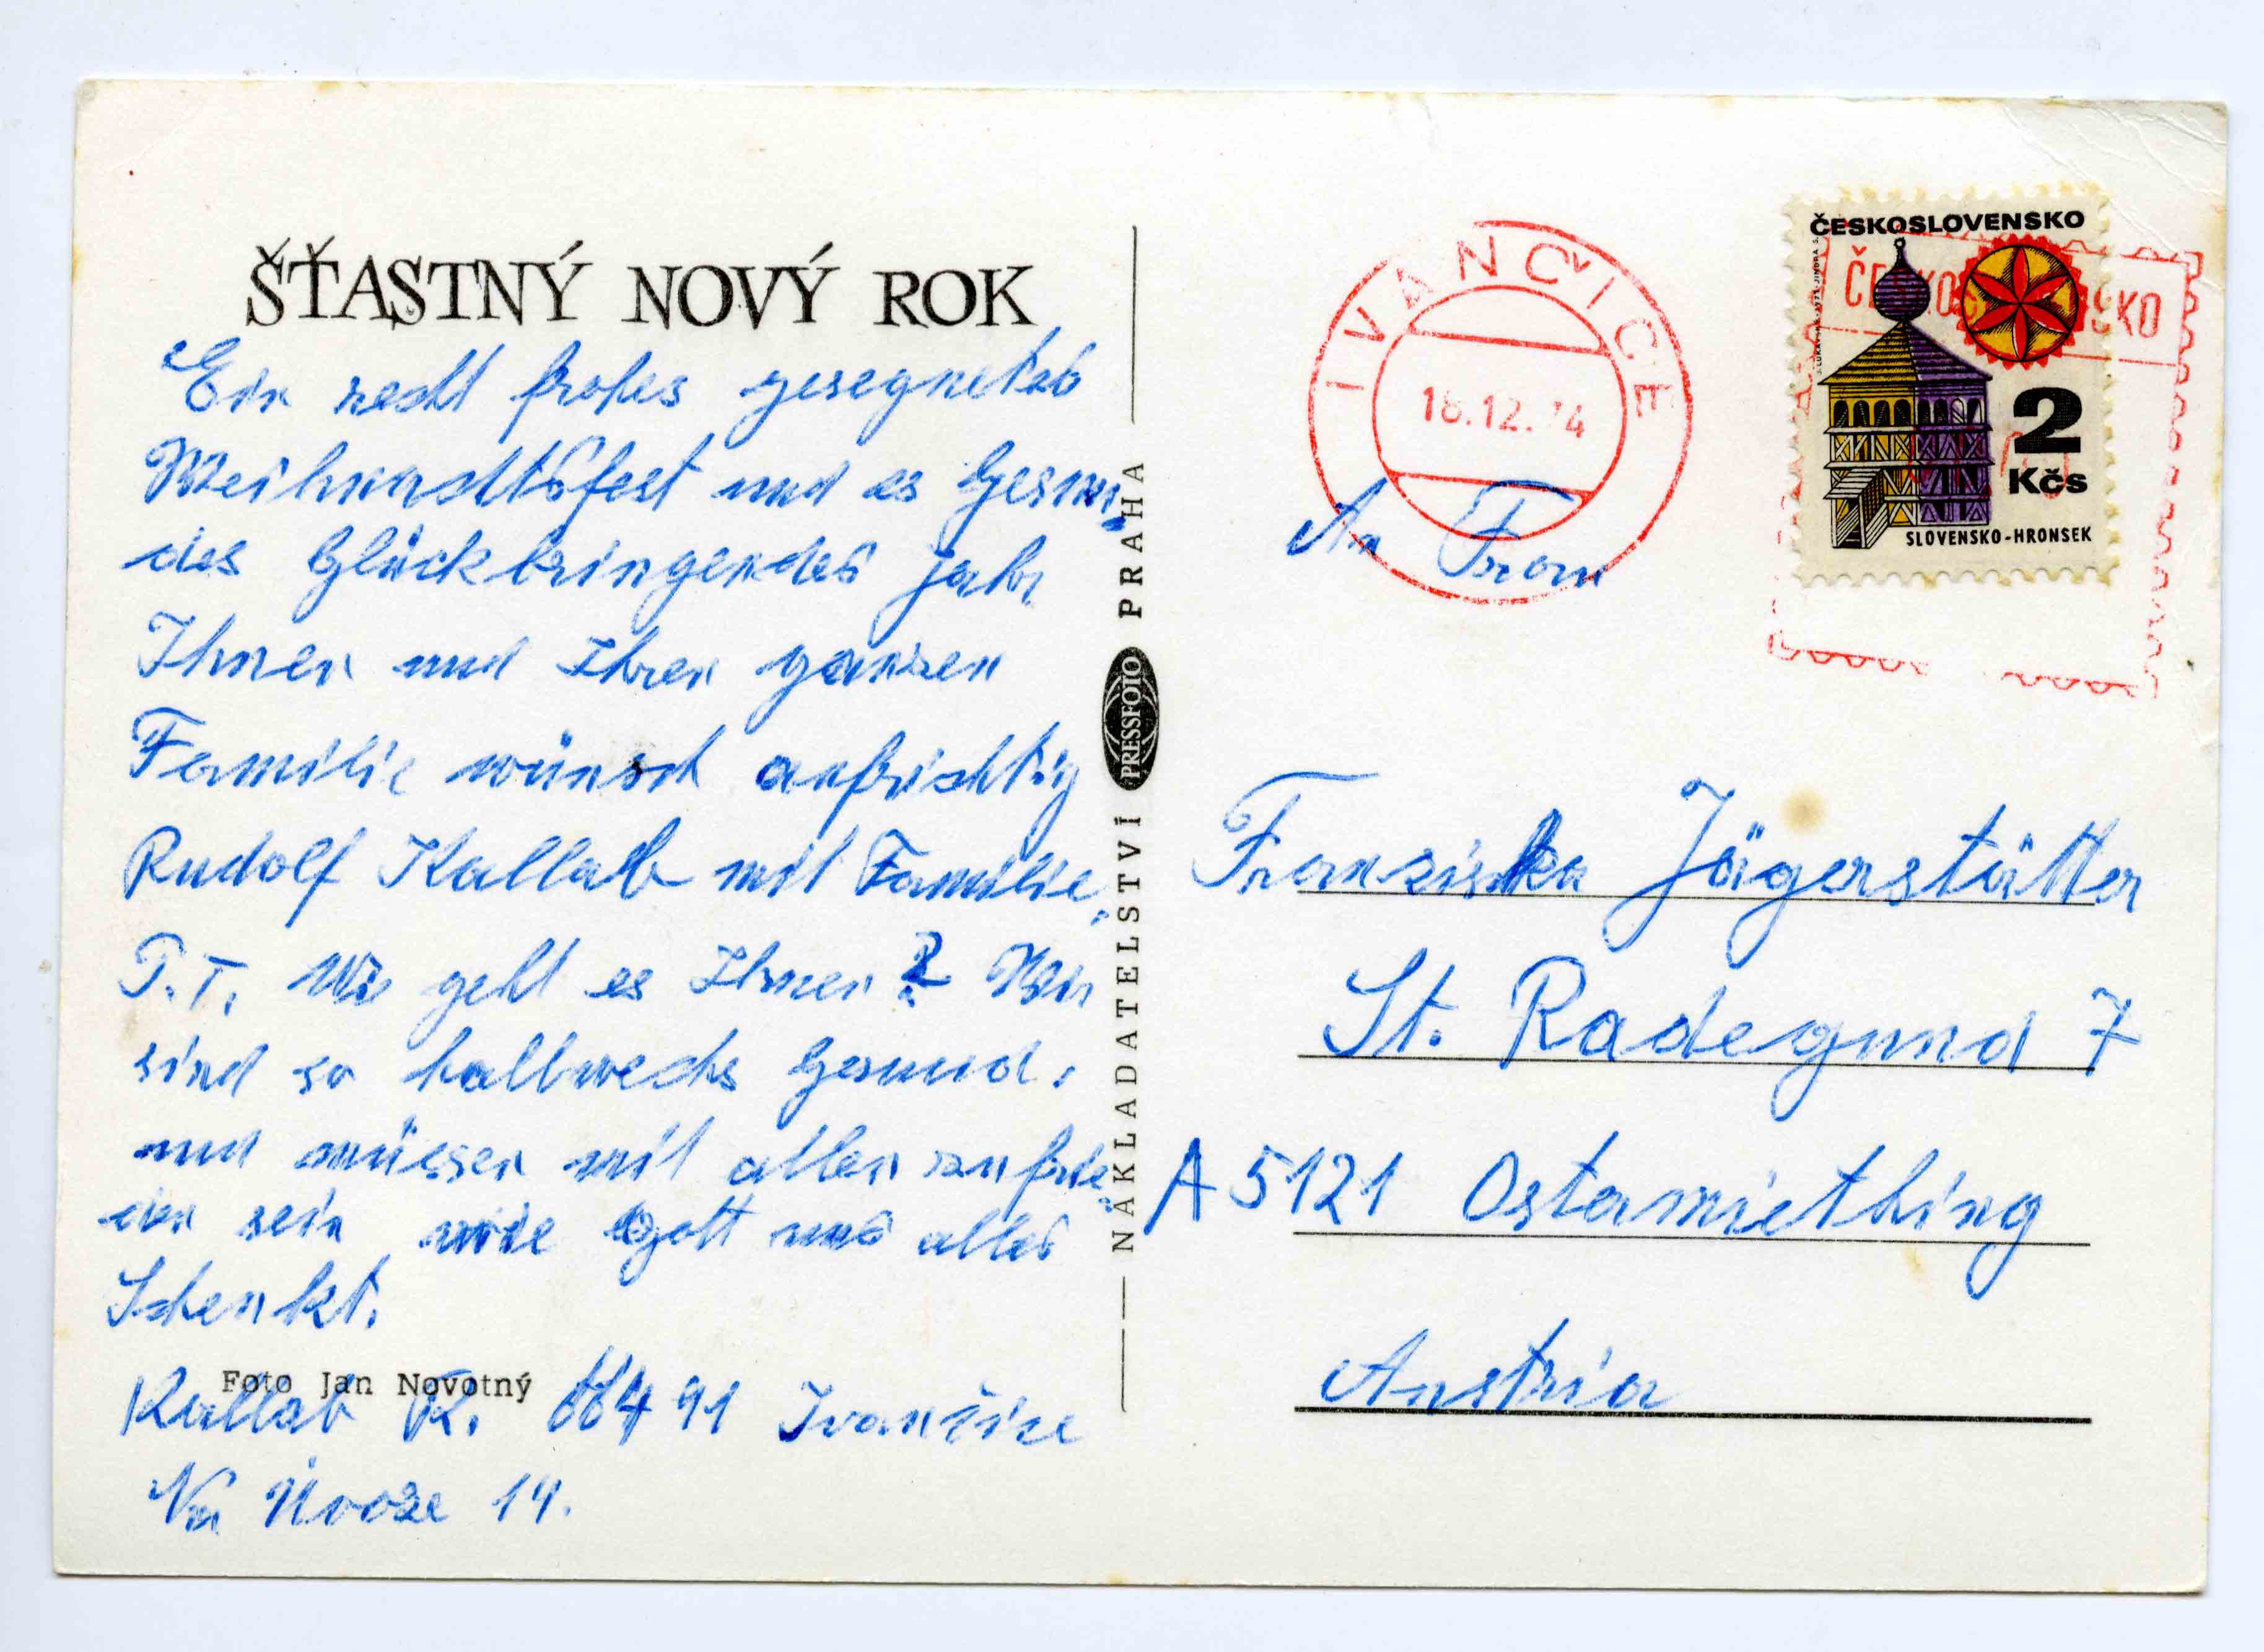 ŠŤASTNÝ NOVÝ ROK
Ein recht frohes gesegnetes
Weihnachtsfest und es Gesun,
des Glückbringendes Jahr
Ihnen und Ihren ganzen
Familie wünsch aufrichtig
Rudolf Kallab mit Familie.
P.T. Wie geht es Ihnen? Wir
sind so hallwechs Gesund.
und müssen mit allen zufrie,
den sein wie Gott uns alles
Schenkt.
Foto Jan Novotný
Kallab R. 66491 Ivančice
Na Úvoze 14.
NAKLADATELSTVÍ PRESSFOTO PRAHA
IVANČICE
18.12.74
ČESKOSLOVENSKO
ČESKOSLOVENSKO
2
Kčs
SLOVENSKO-HRONSEK
An Frau
Franziska Jägerstätter
St. Radegund 7
A 5121 Ostermiething
Austria